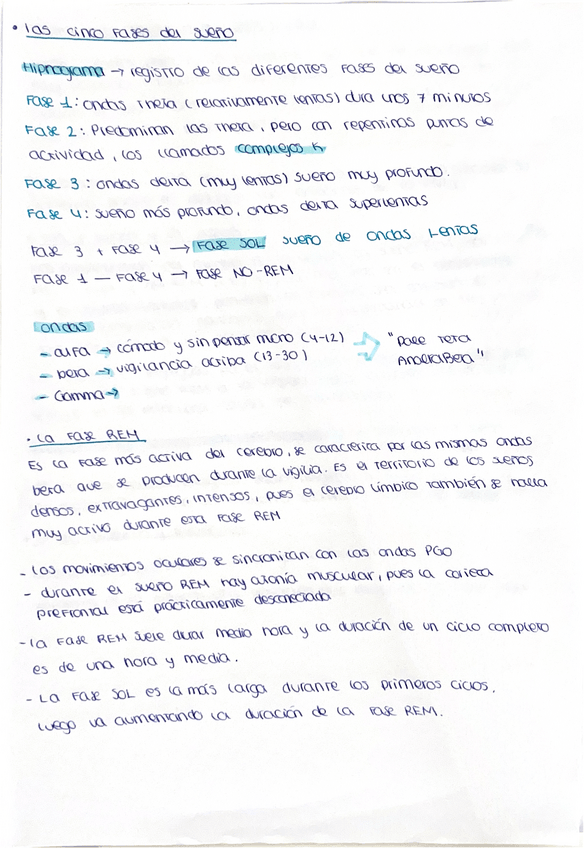 • Las cinco fases del sueño
Hipnograma → registro de las diferentes fases del sueño
Fase 1: ondas theta (relativamente lentas) dura unos 7 minutos
Fase 2: Predominan las theta, pero con repentinas puntas de
actividad, los llamados complejos K
Fase 3: ondas delta (muy lentas) sueño muy profundo.
Fase 4: sueño más profundo, ondas delta superlentas
Fase 3 + Fase 4 → Fase SOL sueño de ondas lentas
Fase 1 — Fase 4 → Fase NO-REM
ondas
- alfa → cómodo y sin pensar mucho (4-12)
- beta → vigilancia activa (13-30)
- Gamma →
"Dale Teta
AndelaBeta"
• La fase REM
Es la fase más activa del cerebro, se caracteriza por las mismas ondas
beta que se producen durante la vigilia. Es el territorio de los sueños
densos, extravagantes, intensos, pues el cerebro límbico también se halla
muy activo durante esta fase REM
- Los movimientos oculares se sincronizan con las ondas PGO
- durante el sueño REM hay atonía muscular, pues la corteza
prefrontal está prácticamente desconectada
- La fase REM suele durar media hora y la duración de un ciclo completo
es de una hora y media.
- La fase SOL es la más larga durante los primeros ciclos,
luego va aumentando la duración de la fase REM.